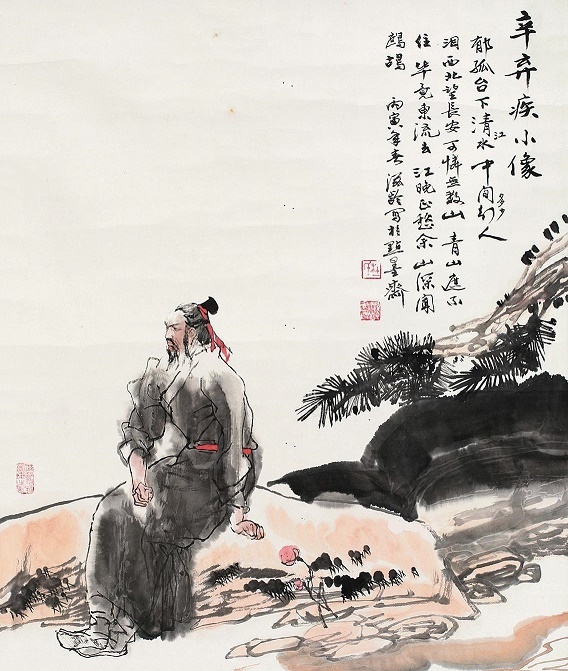 辛弃疾小像
郁孤台下清江水中间多少行人
泪西北望長安可憐無数山青山遮不
住毕竟東流去江晚正愁余山深闻
鹧鸪 丙寅年春滋齡寫於點墨齋